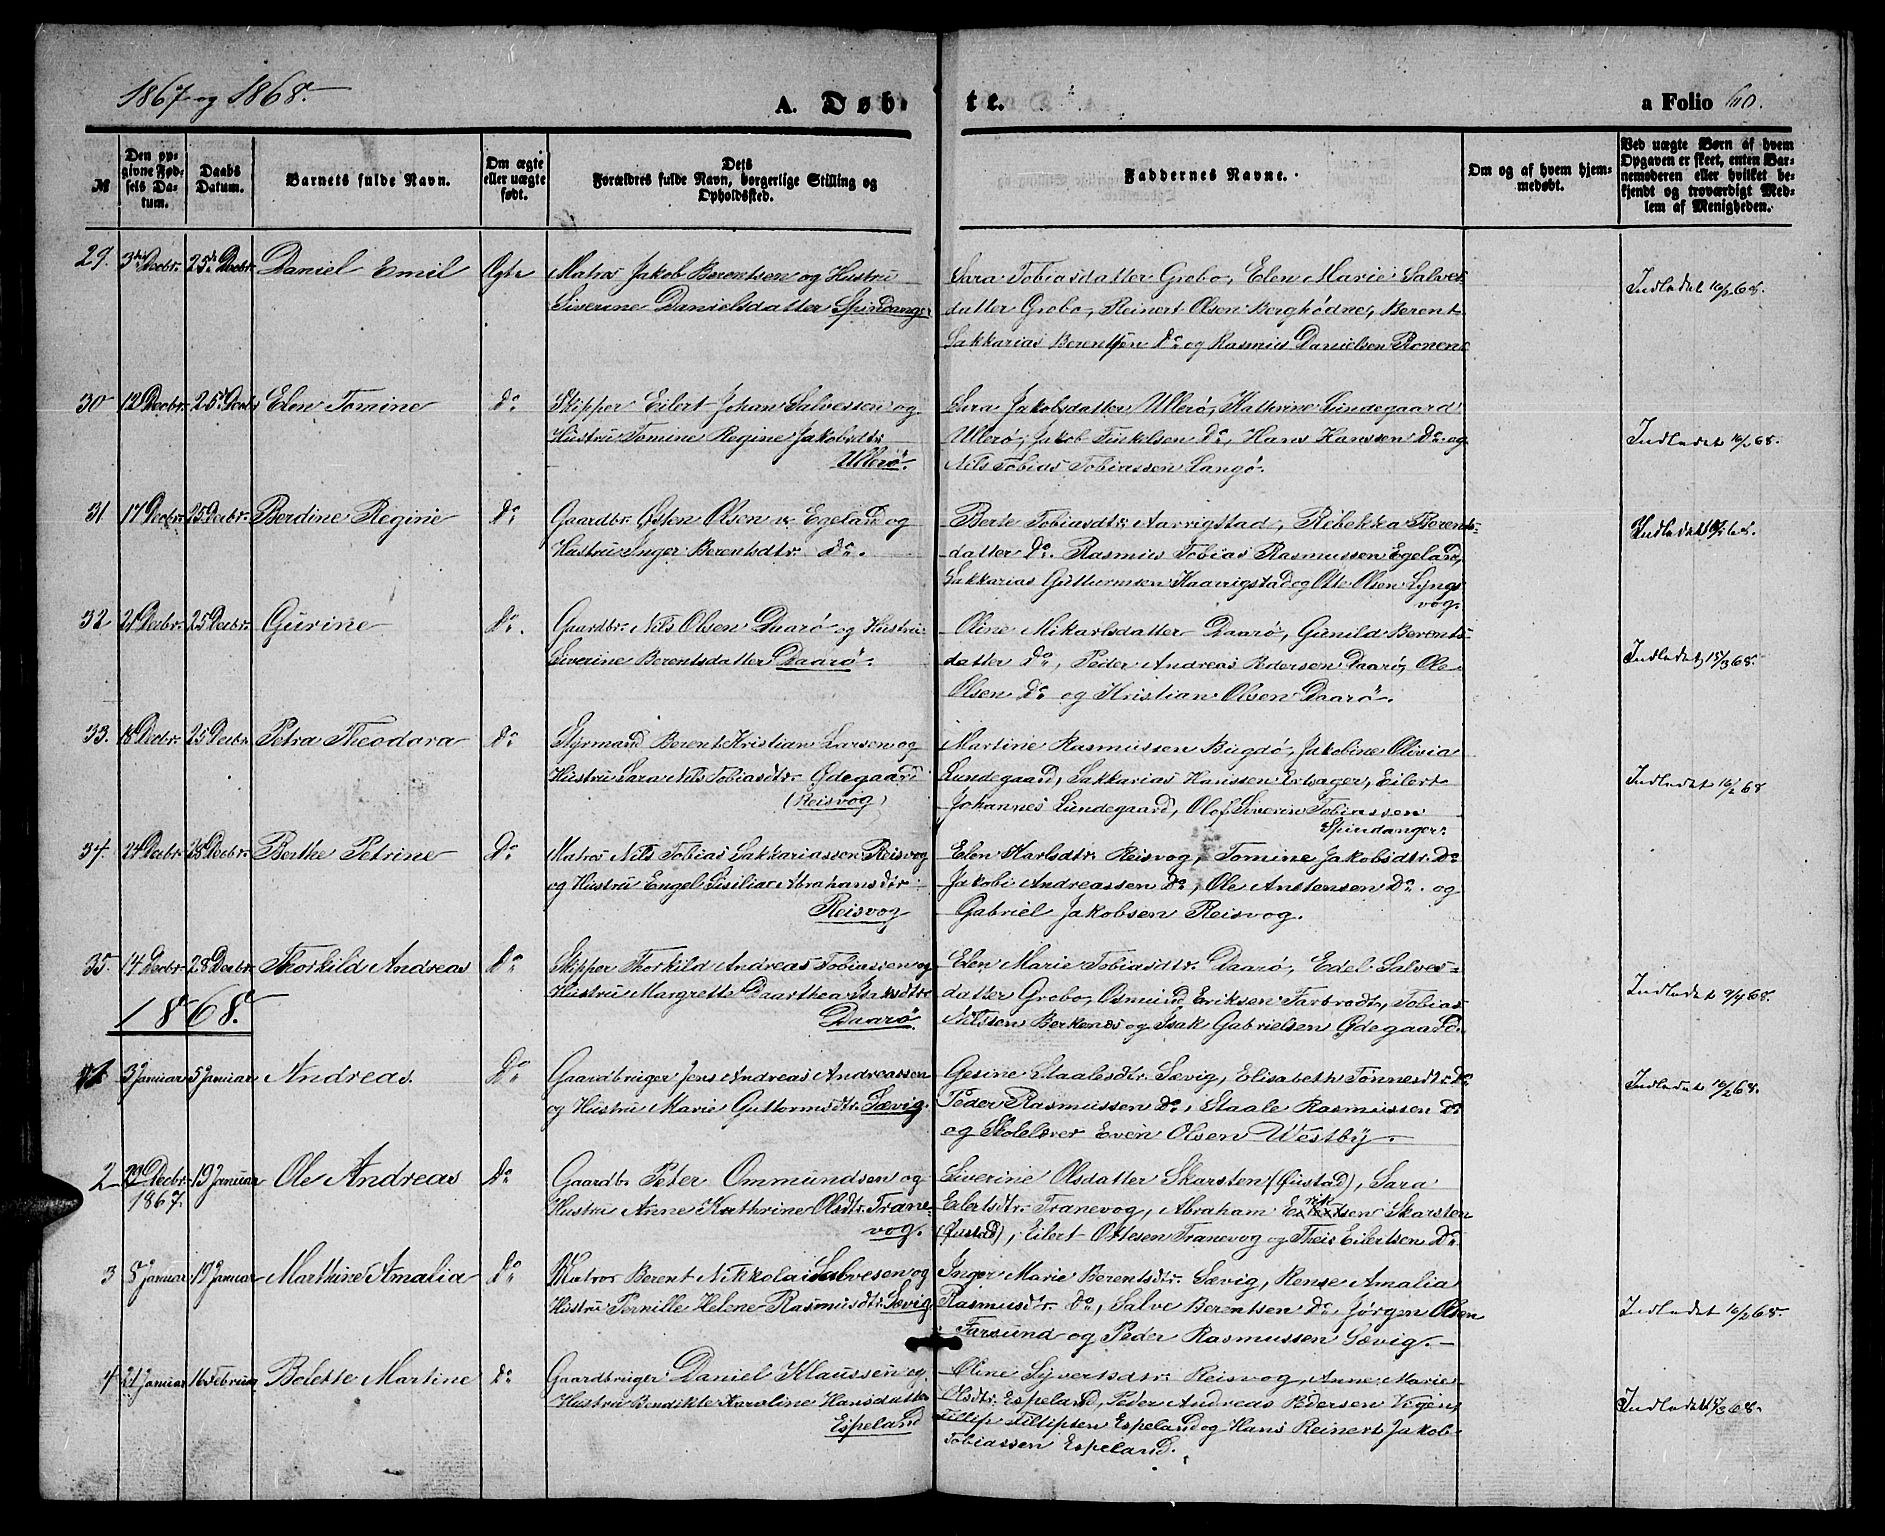 1867 og 1868.
A. Døbte.
a Folio 60.
№
Den opgivne Fødsels Datum.
Daabs Datum.
Barnets fulde Navn.
Om ægte eller uægte født.
Dets Forældres fulde Navn, borgerlige Stilling og Opholdssted.
Faddernes Navne.
Om og af hvem hjemmedøbt.
Ved uægte Børn af hvem Opgaven er skeet, enten Barnemoderen eller hvilket bekjendt og troværdigt Medlem af Menigheden.
29. 3die Decbr. 25de Decbr. Daniel Emil Ægte
Matros Jakob Berentsen og Hustru
Siverine Danielsdatter Spindanger
Sara Tobiasdatter Grebo, Elen Marie Salves
datter Grebo, Reinert Olsen Berghødne, Berent
Sakkarias Berentsen Do og Rasmus Danielsen Ronene
Indladet 16/2 68.
30 12 Decbr. 25 Decbr Elen Tomine Do
Skipper Eilert Johan Salvessen og
Hustru Tomine Regine Jakobsdtr
Ullerø.
Sara Jakobsdatter Ullerø, Kathrine Lundegaard
Ullerø, Jakob Do, Hans Hanssen Do og
Nils Tobias Tobiassen Langø.
Indladet 16/2 68.
31 17 Decbr. 25 Decbr. Berdine Regine Do
Gaardbr. Østen Olsen Egeland og
Hustru Inger Berentsdtr. Do.
Berte Tobiasdtr. Aarrigstad, Rebekka Berents-
datter Do. Rasmus Tobias Rasmussen Egeland,
Sakkarias Guttormsen Kaarrigstad og Ole Olsen Lyngs
vog.
Indladet 68.
32 21 Decbr. 25 Decbr. Gurine Do.
Gaardbr. Nils Olsen Daarø og Hustru
Siverine Berentsdatter Daarø.
Oline Mikarlsdatter Daarø, Gunild Berents-
datter Do, Peder Andreas Pedersen Daarø, Ole
Olsen Do og Kristian Olsen Daarø.
Indladet 15/3 68.
33. 18 Decbr. 25 Decbr. Petra Theodora Do
Styrmand Berent Kristian Larsen og
Hustru Sara Nils Tobiasdtr. Ødegaard
(Reisvog)
Martine Rasmussen Bugdø, Jakobine Olivia
Lundegaard, Sakkarias Hanssen Ertsager, Eilert
Johannes Lundegaard, Olof Siverin Tobiassen
Spindanger.
Indladet 16/2 68
34. 24 Decbr. 28 Decbr. Berthe Petrine Do
Matros Nils Tobias Sakkariassen Reisvog
og Hustru Engel Sisilia Abrahamsdtr
Reisvog
Elen Karlsdtr. Reisvog, Tomine Jakobsdtr. Do
Jakobi Andreassen Do, Ole Anstensen Do. og
Gabriel Jakobsen Reisvog.
35. 14 Decbr. 28 Decbr. Thorkild Andreas Do
Skipper Thorkild Andreas Tobiassen og
Hustru Margrette Daarthea Isaksdtr.
Daarø
Elen Marie Tobiasdtr. Daarø, Edel Salves-
datter Grebo, Osmund Eriksen Farbrodt, Tobias
Nilssen Berkenes og Isak Gabrielsen Ødegaard.
Indladet 9/4 68.
1868.
1 3 Januar 5 Januar Andreas. Do
Gaardbruger Jens Andreas Andreassen
og Hustru Marie Guttormsdtr. Sævig.
Gesine Staalesdtr. Sævig, Elisabeth Tønnesdtr. Do
Peder Rasmussen Do, Staale Rasmussen Do
og Skolelærer Even Olsen Westby.
Indladet 16/2 68.
2 29 Decbr. 1867. 19 Januar Ole Andreas Do
Gaardb. Peter Ommundsen og
Hustru Anne Kathrine Olsdtr. Trane-
vog.
Siverine Olsdatter Skarsten (Øustad), Sara
Eilertsdtr. Tranevog, Abraham Eriksen Skarsten
(Øustad), Eilert Ottesen Tranevog og Theis Eilertsen Do.
3 8 Januar 19 Januar Marthine Amalia Do
Matros Berent Nikkolai Salvesen og
Hustru Pernille Helene Rasmusdtr. Sævig
Inger Marie Berentsdtr. Sævig, Rense Amalia
Rasmusdtr. Do, Salve Berentsen Do, Jørgen Olsen
Farsund og Peder Rasmussen Sævig.
Indladet 16/2 68.
4 21 Januar 16 Februar Bolette Martine Do
Gaardbruger Daniel Klaussen og
Hustru Bendikte Karoline Hansdatter
Espeland
Oline Syvertsdtr. Reisvog, Anne Marie
Olsdtr. Espeland, Peder Andreas Pedersen Vigen,
Fillip Fillipsen Espeland og Hans Reinert Jakob
Tobiassen Espeland.
Indladet 68.